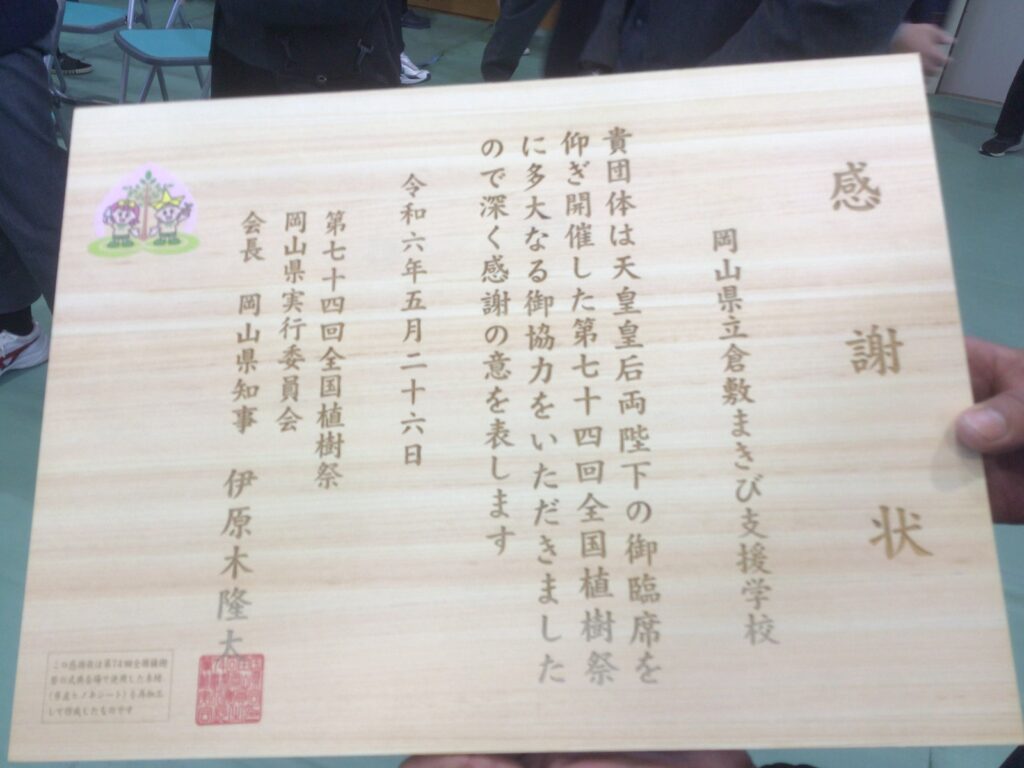 感謝状
岡山県立倉敷まきび支援学校
貴団体は天皇皇后両陛下の御臨席を
仰ぎ開催した第七十四回全国植樹祭
に多大なる御協力をいただきました
ので深く感謝の意を表します
令和六年五月二十六日
第七十四回全国植樹祭
岡山県実行委員会
会長 岡山県知事 伊原木隆太
この感謝状は第74回全国植樹
祭の式典会場で使用した木材
(県産ヒノキシート)を再加工
して作成したものです